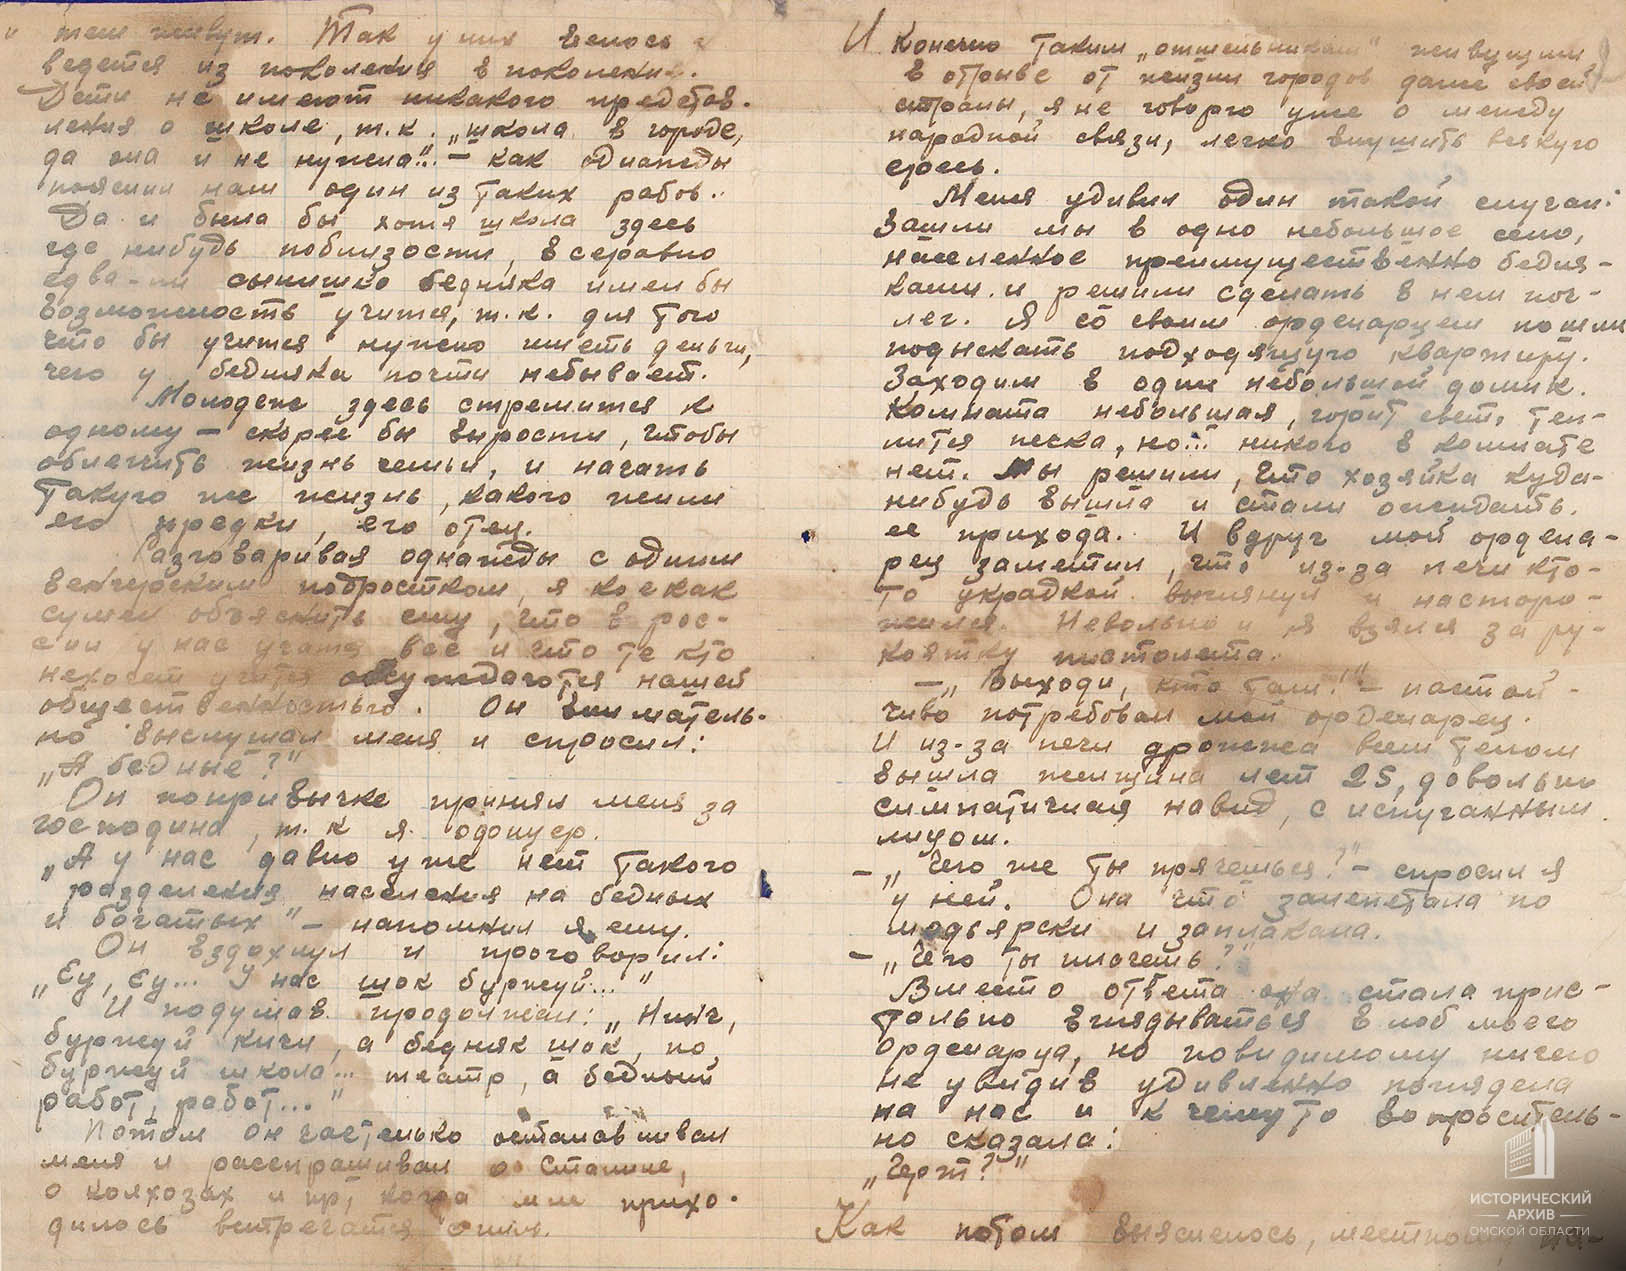 и тем живут. Так у них велось и
ведется из поколения в поколение.
Дети не имеют никакого представ-
ления о школе, т.к. „школа в городе,
да она и не нужена"... – как однажды
пояснил нам один из таких рабов..
Да и была бы хотя школа здесь
где нибудь поблизости, всеравно
едва-ли сынишко бедняка имел бы
возможность учится, т.к. для того
что бы учится нужно иметь деньги,
чего у бедняка почти небывает.
Молодежь здесь стремится к
одному – скорее бы вырости, чтобы
облегчить жизнь семьи, и начать
такую же жизнь, какою жили
его предки, его отец.
Разговаривая однажды с одним
венгерским подростком, я кое как
сумел объяснить ему, что в рос-
сии у нас учатся все и что те кто
нехочет учится обсуждаются нашей
общественностью. Он вниматель-
но выслушал меня и спросил:
„А бедные?"
Он попривычке принял меня за
господина, т.к я офицер.
„А у нас давно уже нет такого
разделения населения на бедных
и богатых" – напомнил я ему.
Он вздохнул и проговорил:
„Еу, еу... У нас шок буржуй..."
И подумав продолжал: „Нинч,
буржуй кичи, а бедняк шок, но
буржуй школа... театр, а бедный
работ, работ..."
Потом он частенько останавливал
меня и расспрашивал о Сталине,
о колхозах и пр, когда мне прихо-
дилось встречатся с ним.
И конечно таким „отшельникам" живущим
в отрыве от жизни городов даже своей
страны, я не говорю уже о между
народной связи, легко внушить всякую
ересь.
Меня удивил один такой случай:
Зашли мы в одно небольшое село,
населенное преимущественно бедня-
ками и решили сделать в нем ноч-
лег. Я со своим орденарцем пошли
подыскать подходящую квартиру.
Заходим в один небольшой домик.
Комната небольшая, горит свет, теп-
лится печка, но... никого в комнате
нет. Мы решили, что хозяйка куда-
нибудь вышла и стали ожидать
ее прихода. И вдруг мой ордена-
рец заметил, что из-за печи кто-
то украдкой выглянул и насторо-
жился. Невольно и я взялся за ру-
коятку пистолета.
– „Выходи, кто там!" – настой-
чиво потребовал мой орденарец.
И из-за печи дрожжа всем телом
вышла женщина лет 25, довольно
симпатичная навид, с испуганным
лицом.
– „Чего же ты прячешься?" – спросил я
у ней. Она что то залепетала по
мадьярски и заплакала.
– „Чего ты плачешь?"
Вместо ответа она стала прис-
тально вглядываться в лоб моего
орденарца, но повидимому ничего
не увидив удивленно поглядела
на нас и к чему то вопроситель-
но сказала:
„Черт?"
Как потом выяснелось, местному на-
ИСТОРИЧЕСКИЙ
АРХИВ
ОМСКОЙ ОБЛАСТИ